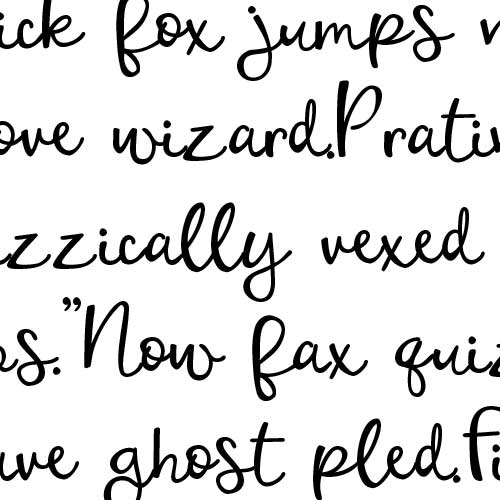 ick fox jumps
ove wizard.Pratin
izzically vexed
ps."Now fax quiz
ave ghost pled.Fi